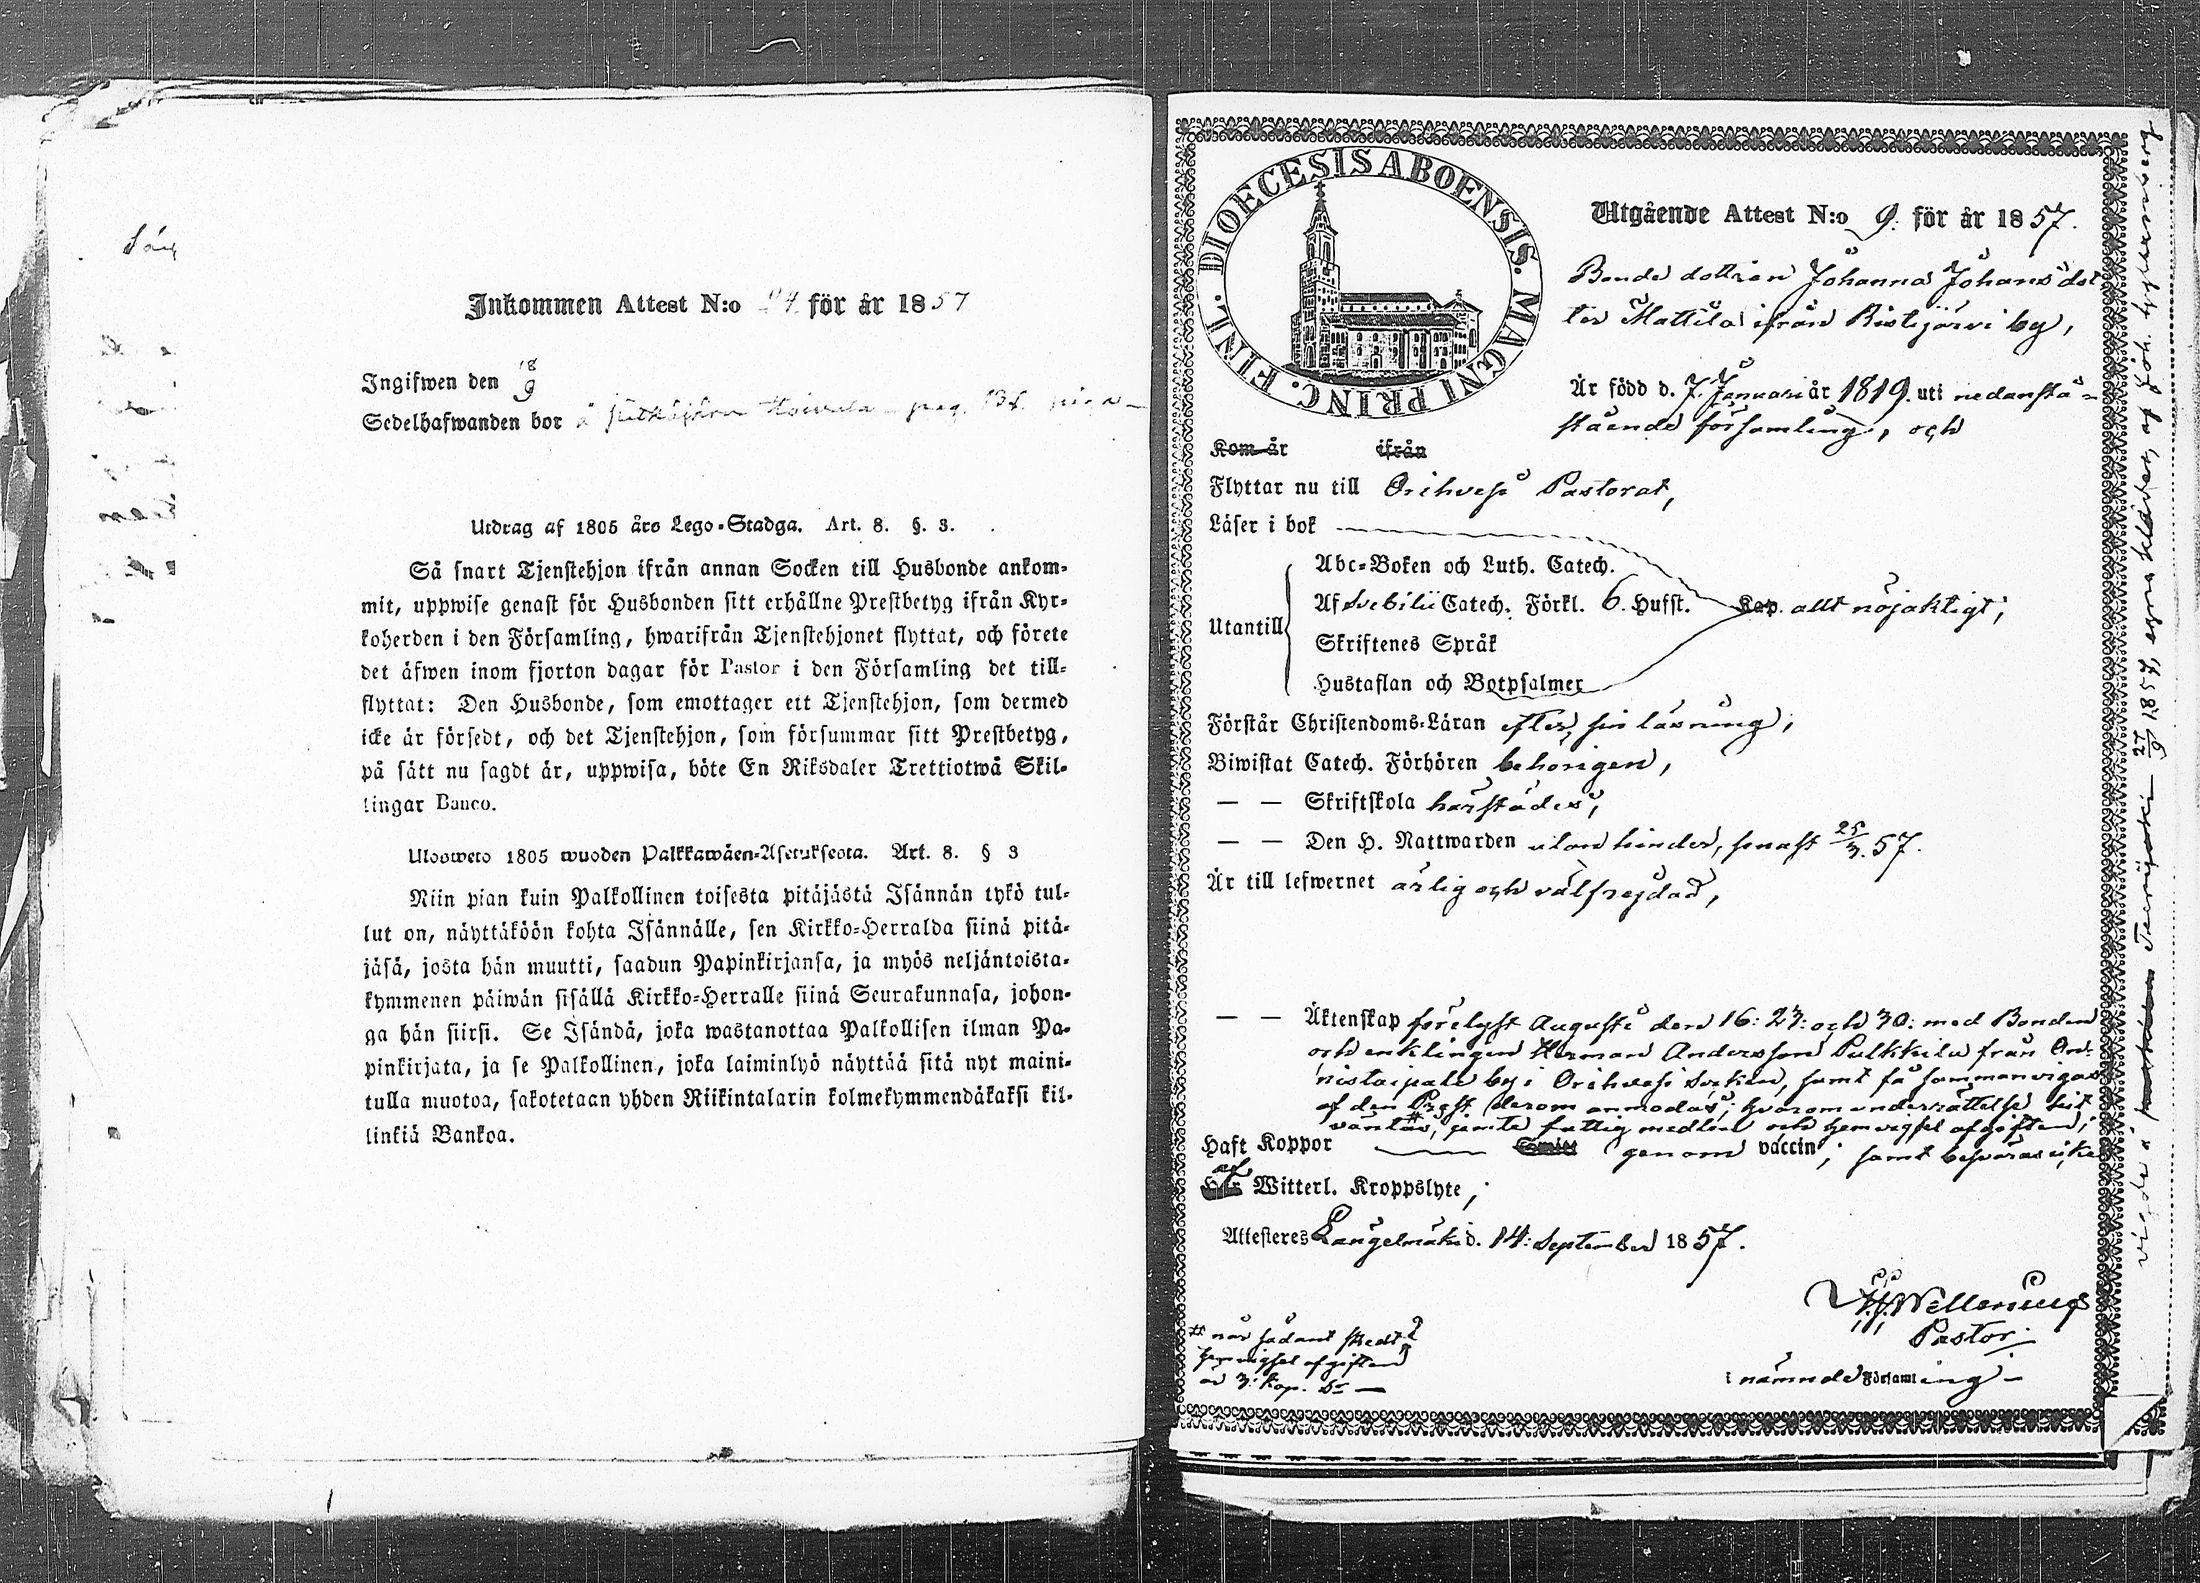 Inkommen Attest N:o 24 för år 1857
Ingifwen den 18/9
Sedelhafwanden bor å
Utdrag af 1805 års Lego-Stadga. Art. 8. §. 3.
Så snart Tjenstehjon ifrån annan Socken till Husbonde ankom-
mit, uppwise genast för Husbonden sitt erhållne Prestbetyg ifrån Kyr-
koherden i den Församling, hwarifrån Tjenstehjonet flyttat, och förete
det äfwen inom fjorton dagar för Pastor i den Församling det till-
flyttat: Den Husbonde, som emottager ett Tjenstehjon, som dermed
icke är försedt, och det Tjenstehjon, som försummar sitt Prestbetyg,
på sätt nu sagdt är, uppwisa, böte En Riksdaler Trettiotwå Skil-
lingar Banco.
Ulosweto 1805 wuoden Palkkawäen-Asetuksesta. Art. 8. § 3
Niin pian kuin Palkollinen toisesta pitäjästä Isännän tykö tul-
lut on, näyttäköön kohta Isännälle, sen Kirkko-Herralda siinä pitä-
jäsä, josta hän muutti, saadun Papinkirjansa, ja myös neljäntoista-
kymmenen päiwän sisällä Kirkko-Herralle siinä Seurakunnasa, johon-
ga hän siirsi. Se Isändä, joka wastanottaa Palkollisen ilman Pa-
pinkirjata, ja se Palkollinen, joka laiminlyö näyttää sitä nyt maini-
tulla muotoa, sakotetaan yhden Riikintalarin kolmekymmendäkaksi kil-
linkiä Bankoa.
DIOECESIS ABOENSIS. MAGNI PRINC. FINL.
Utgående Attest N:o 9. för år 1857.
Bonde dottren Johanna Johans dot
ter Mattila ifrån Ristijärvi by,
Är född d. 7. Januari år 1819. uti nedanstå-
stående församling, och
Kom år ifrån
Flyttar nu till Orihvesi Pastorat,
Läser i bok
Abc-Boken och Luth. Catech.
Utantill Af Svebilii Catech. Förkl. 6. Hufst. Kap. allt nöjaktigt;
Skriftenes Språk
Hustaflan och Botpsalmer
Förstår Christendoms-Läran efter sin läsning;
Biwistat Catech. Förhören behörigen,
— — Skriftskola härstädes,
— — Den H. Nattwarden utan hinder, senast 25/3. 57.
Är till lefwernet ärlig och välfrejdad,
— — Äktenskap förelyst Augusti den 16: 23: och 30: med Bonden
och enklingen Herman Andersson Pulkkila från On-
nistaipale by i Orihvesi Socken, samt få sammanvigas
af den Prest derom anmodas; hvarom underrättelse hit
väntas #, jemte fattig medlen och hemvigsel afgiften;
Haft Koppor — Smitt genom vaccin; samt besväras icke
af Witterl. Kroppslyte,
Attesteres Längelmäki d. 14: September 1857.
Wellenius
Pastor
i nämnde Församling
# när sådant skedt
hemvigsel afgiften
3: kop. Sr —